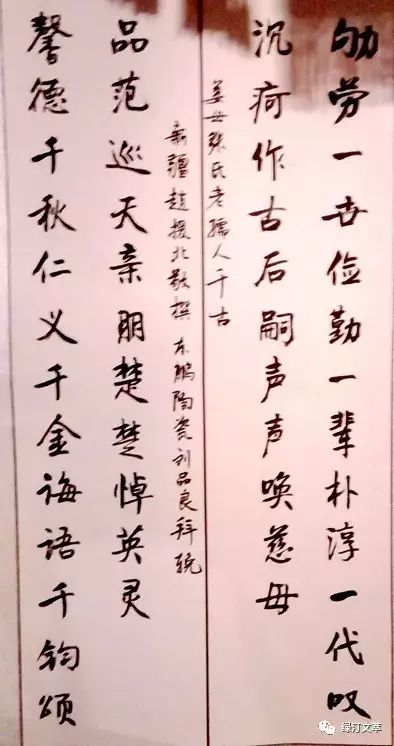 劬劳一世俭勤一辈朴淳一代叹
沉疴作古后嗣声声唤慈母
姜母张氏老孺人千古
馨德千秋仁义千金诲语千钧颂
品范巡天亲朋楚楚悼英灵
新疆赵援北敬撰 东鹏陶瓷刘品良拜挽
绿汀文萃